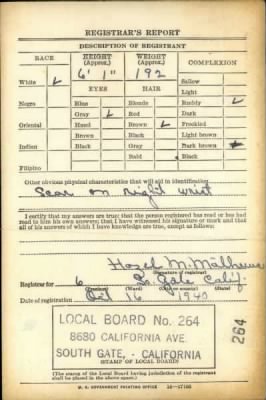 REGISTRAR'S REPORT
DESCRIPTION OF REGISTRANT
RACE
HEIGHT (Approx.)
WEIGHT (Approx.)
COMPLEXION
6' 1"
192
White ✓
Sallow
EYES
HAIR
Light
Negro
Blue
Blonde
Ruddy ✓
Gray ✓
Red
Dark
Oriental
Hazel
Brown ✓
Freckled
Brown
Black
Light brown
Indian
Black
Gray
Dark brown
Bald
Black
Filipino
Other obvious physical characteristics that will aid in identification
Scar on right wrist
I certify that my answers are true; that the person registered has read or has had
read to him his own answers; that I have witnessed his signature or mark and that
all of his answers of which I have knowledge are true, except as follows:
Hazel M.
(Signature of registrar)
Registrar for 6 So. Gate Calif
(Precinct) (Ward) (City or County) (State)
Date of registration Oct 16 1940
LOCAL BOARD No. 264
8680 CALIFORNIA AVE
SOUTH GATE, - CALIFORNIA
(STAMP OF LOCAL BOARD)
264
(The stamp of the Local Board having jurisdiction of the registrant
shall be placed in the above space.)
U. S. GOVERNMENT PRINTING OFFICE